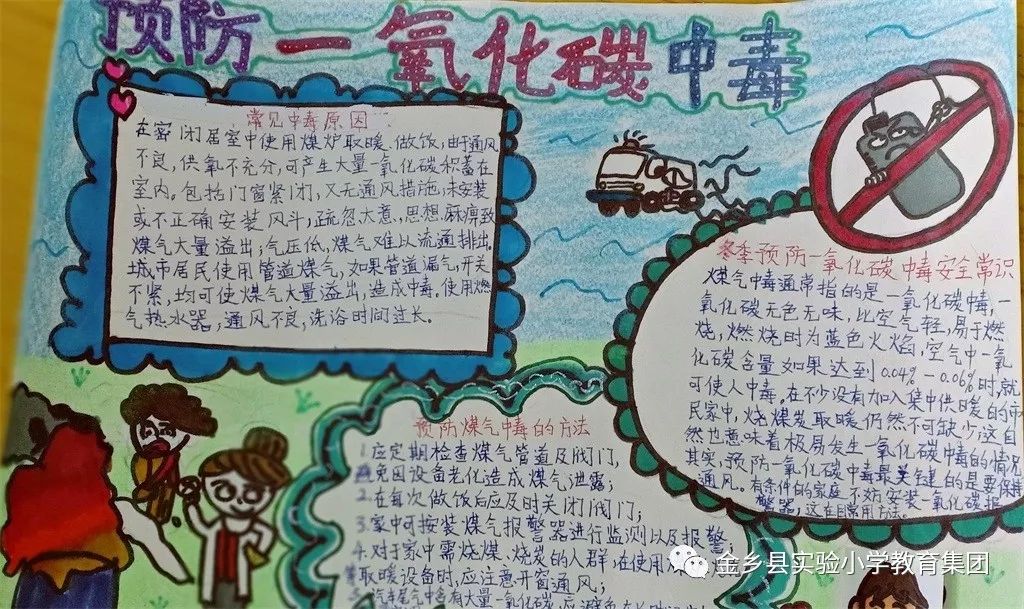 预防一氧化碳中毒
常见中毒原因
在密闭居室中使用煤炉取暖、做饭,由于通风
不良,供氧不充分,可产生大量一氧化碳积蓄在
室内。包括门窗紧闭,又无通风措施,未安装
或不正确安装风斗;疏忽大意,思想麻痹致
煤气大量溢出;气压低,煤气难以流通排出。
城市居民使用管道煤气,如果管道漏气,开关
不紧,均可使煤气大量溢出,造成中毒。使用燃
气热水器,通风不良,洗浴时间过长。
冬季预防一氧化碳中毒安全常识
煤气中毒通常指的是一氧化碳中毒,一
氧化碳无色无味,比空气轻,易于燃
烧,燃烧时为蓝色火焰,空气中一氧
化碳含量如果达到0.04%-0.06%时,就
可使人中毒。在不少没有加入集中供暖的市
民家中,烧煤炭取暖仍然不可缺少,这自
然也意味着极易发生一氧化碳中毒的情况
其实,预防一氧化碳中毒最关键的是要保持
通风。有条件的家庭不妨安装一氧化碳报
警器,这在日常用方法。
预防煤气中毒的方法
1.应定期检查煤气管道及阀门,
避免因设备老化造成煤气泄露;
2.在每次做饭后应及时关闭阀门;
3.家中可按装煤气报警器进行监测以及报警
4.对于家中需烧煤、烧炭的人群,在使用
取暖设备时,应注意开窗通风;
汽车尾气中含有大量一氧化碳,应避免在
金乡县实验小学教育集团